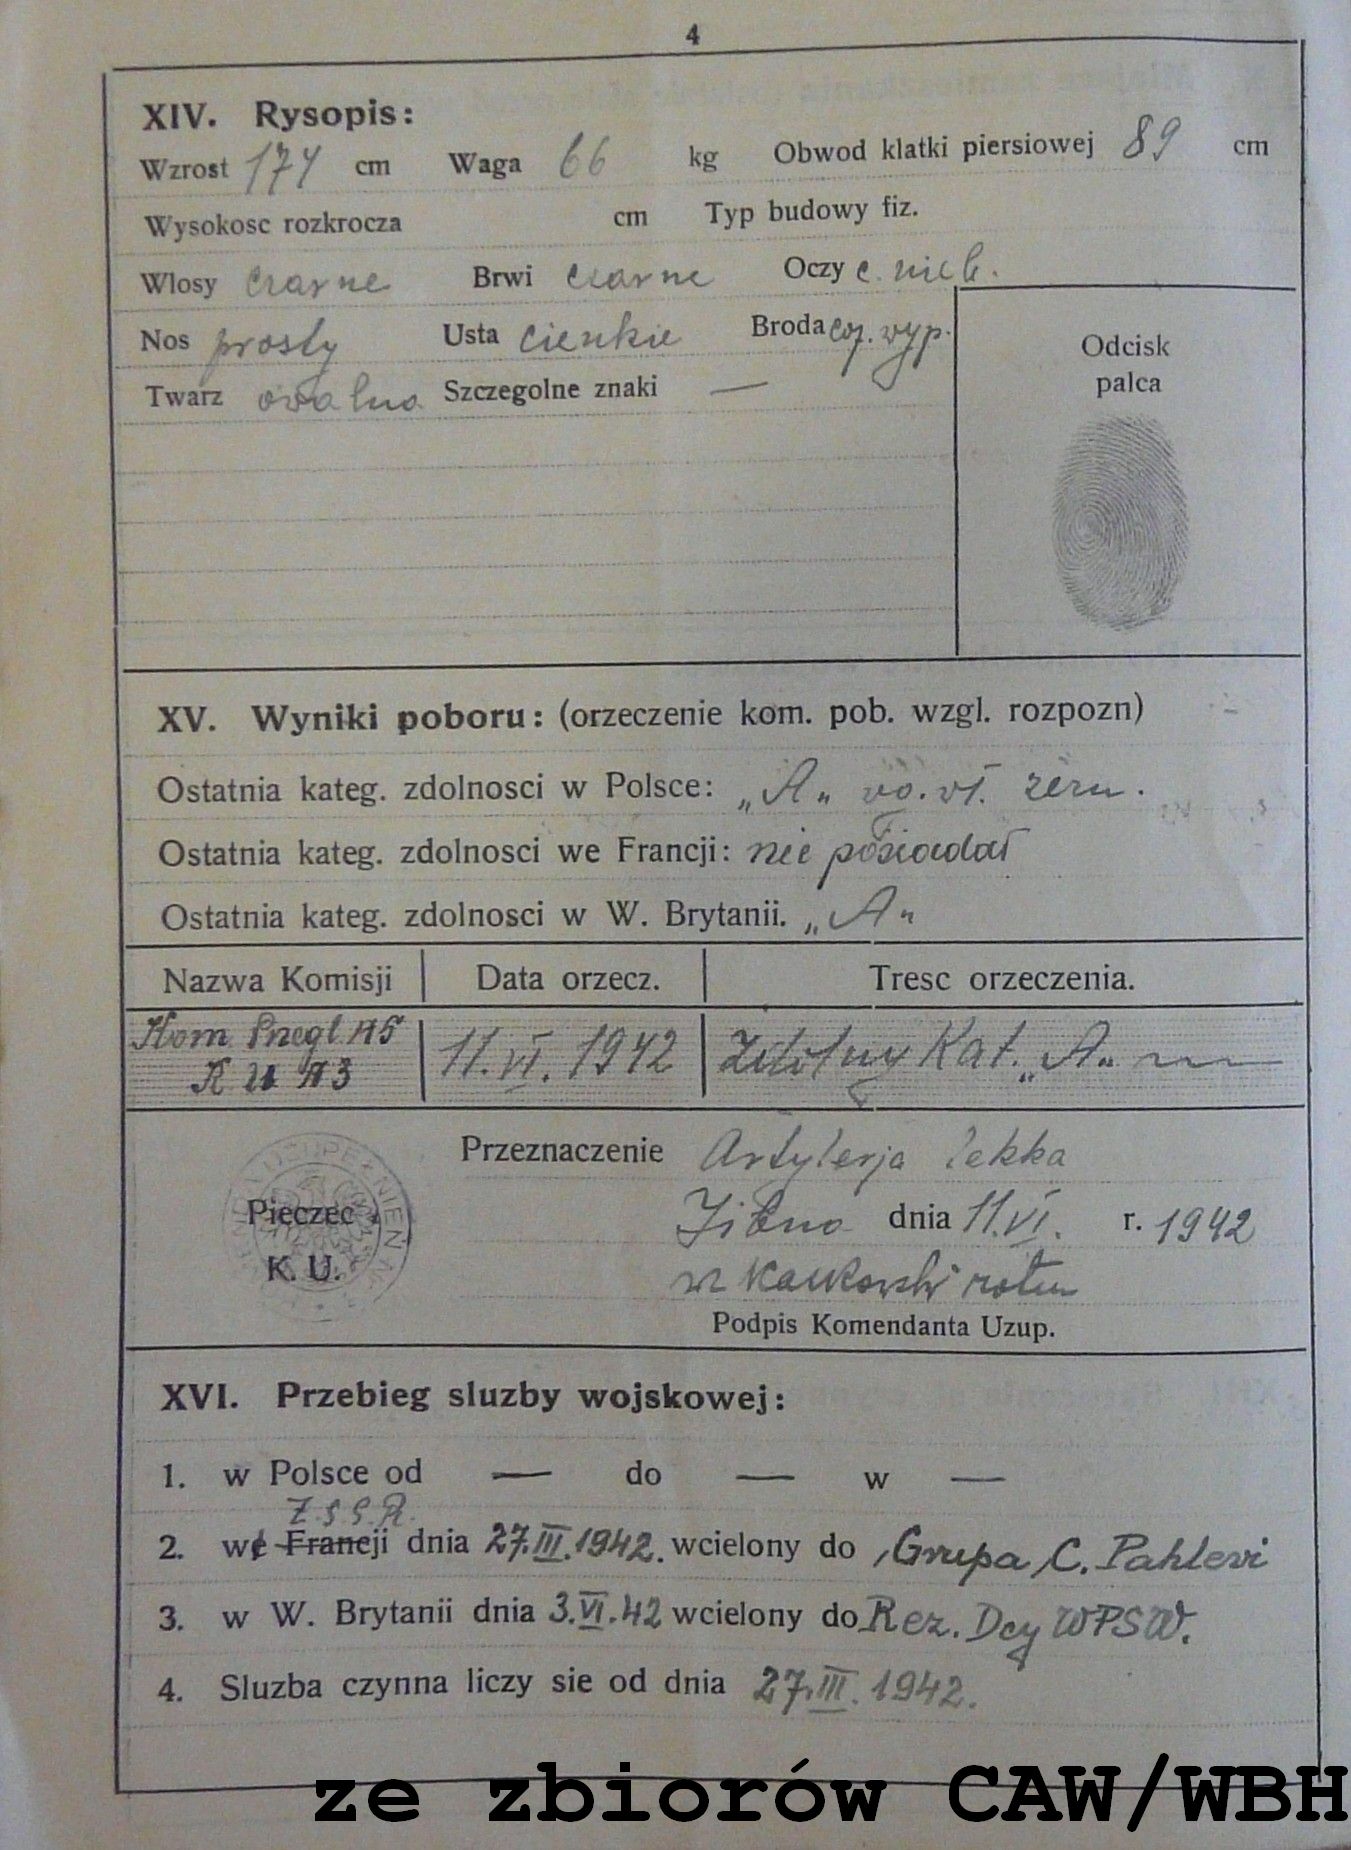 4
XIV. Rysopis:
Wzrost 174 cm Waga 66 kg Obwod klatki piersiowej 89 cm
Wysokosc rozkrocza cm Typ budowy fiz.
Wlosy czarne Brwi czarne Oczy c. nieb.
Nos prosty Usta cienkie Broda wyp.
Twarz owalna Szczegolne znaki —
Odcisk
palca
XV. Wyniki poboru: (orzeczenie kom. pob. wzgl. rozpozn)
Ostatnia kateg. zdolnosci w Polsce: „A„
Ostatnia kateg. zdolnosci we Francji: nie posiadał
Ostatnia kateg. zdolnosci w W. Brytanii. „A„
Nazwa Komisji Data orzecz. Tresc orzeczenia.
Kom Przegl. 11.VI.1942 Zdolny Kat. „A„
K U 3
Przeznaczenie Artylerja lekka
Pieczec dnia 11.VI. r. 1942
K. U.
Podpis Komendanta Uzup.
XVI. Przebieg sluzby wojskowej:
1. w Polsce od — do — w —
Z.S.S.R.
2. we Francji dnia 27.III.1942. wcielony do Grupa C. Pahlevi
3. w W. Brytanii dnia 3.VI.42 wcielony do Rez. Dcy WPSW.
4. Sluzba czynna liczy sie od dnia 27.III.1942.
ze zbiorów CAW/WBH